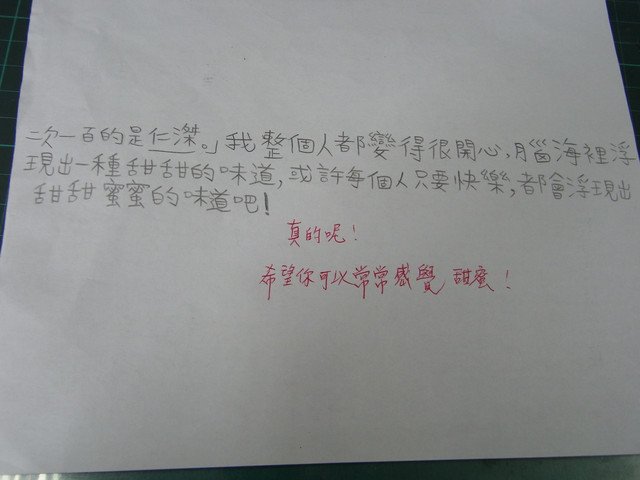 二次一百的是仁滐。」我整個人都變得很開心,腦海裡浮
現出一種甜甜的味道,或許每個人只要快樂,都會浮現出
甜甜蜜蜜的味道吧!
真的呢!
希望你可以常常感覺甜蜜!